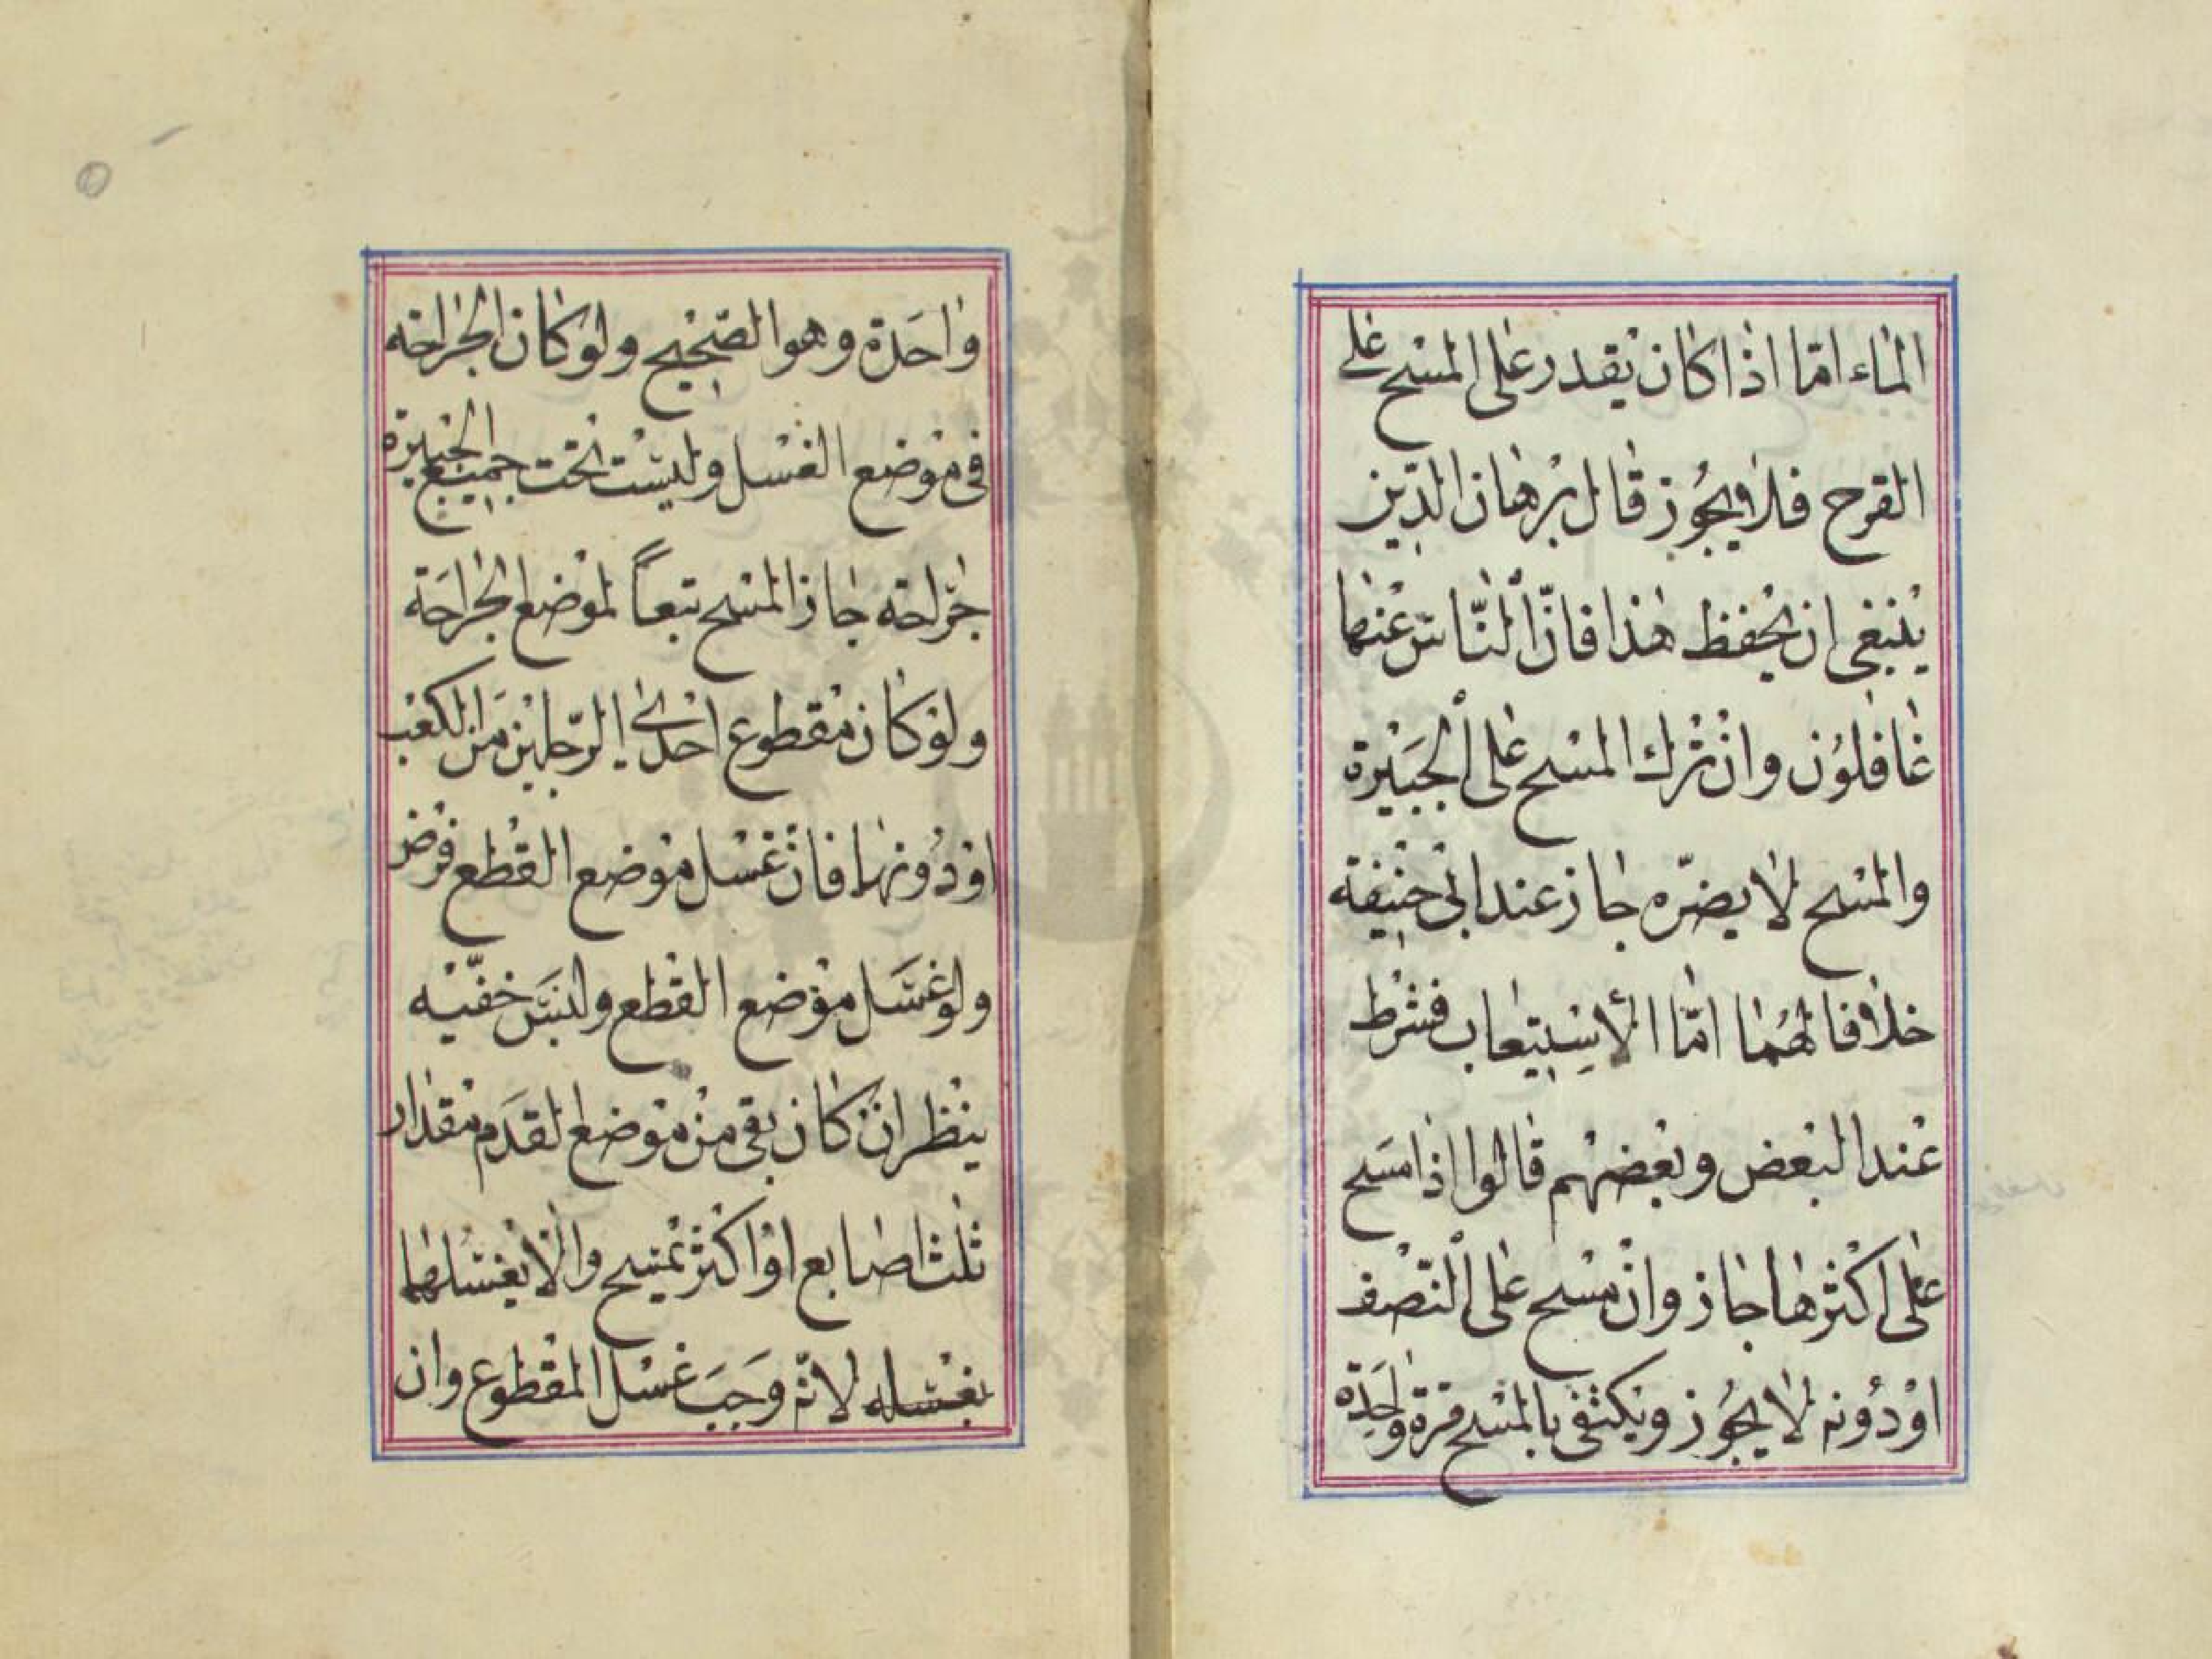 الماء امّا اذا كان يقدر على المسح على
القرح فلا يجوز قال برهان الدّين
ينبغي ان يحفظ هذا فانّ النّاس عنها
غافلون وان ترك المسح على الجبيرة
والمسح لا يضرّه جاز عند ابي حنيفة
خلافا لهما امّا الأستيعاب فشرط
عند البعض وبعضهم قالوا اذا مسح
على اكثرها جاز وان مسح على النّصف
او دونه لا يجوز ويكتفى بالمسح مرة واحدة
واحدة وهو الصّحيح ولو كان الجراحة
في موضع الغسل وليست تحت جميع الجبيرة
جراحة جاز المسح تبعاً لموضع الجراحة
ولو كان مقطوع احدى الرّجلين من الكعب
او دونها فان غسل موضع القطع فرض
ولو غسل موضع القطع ولبس خفّيه
ينظر ان كان بقي من موضع القدم مقدار
ثلث اصابع او اكثر يمسح والّا يغسلها
بغسله لانّه وجب غسل المقطوع وان